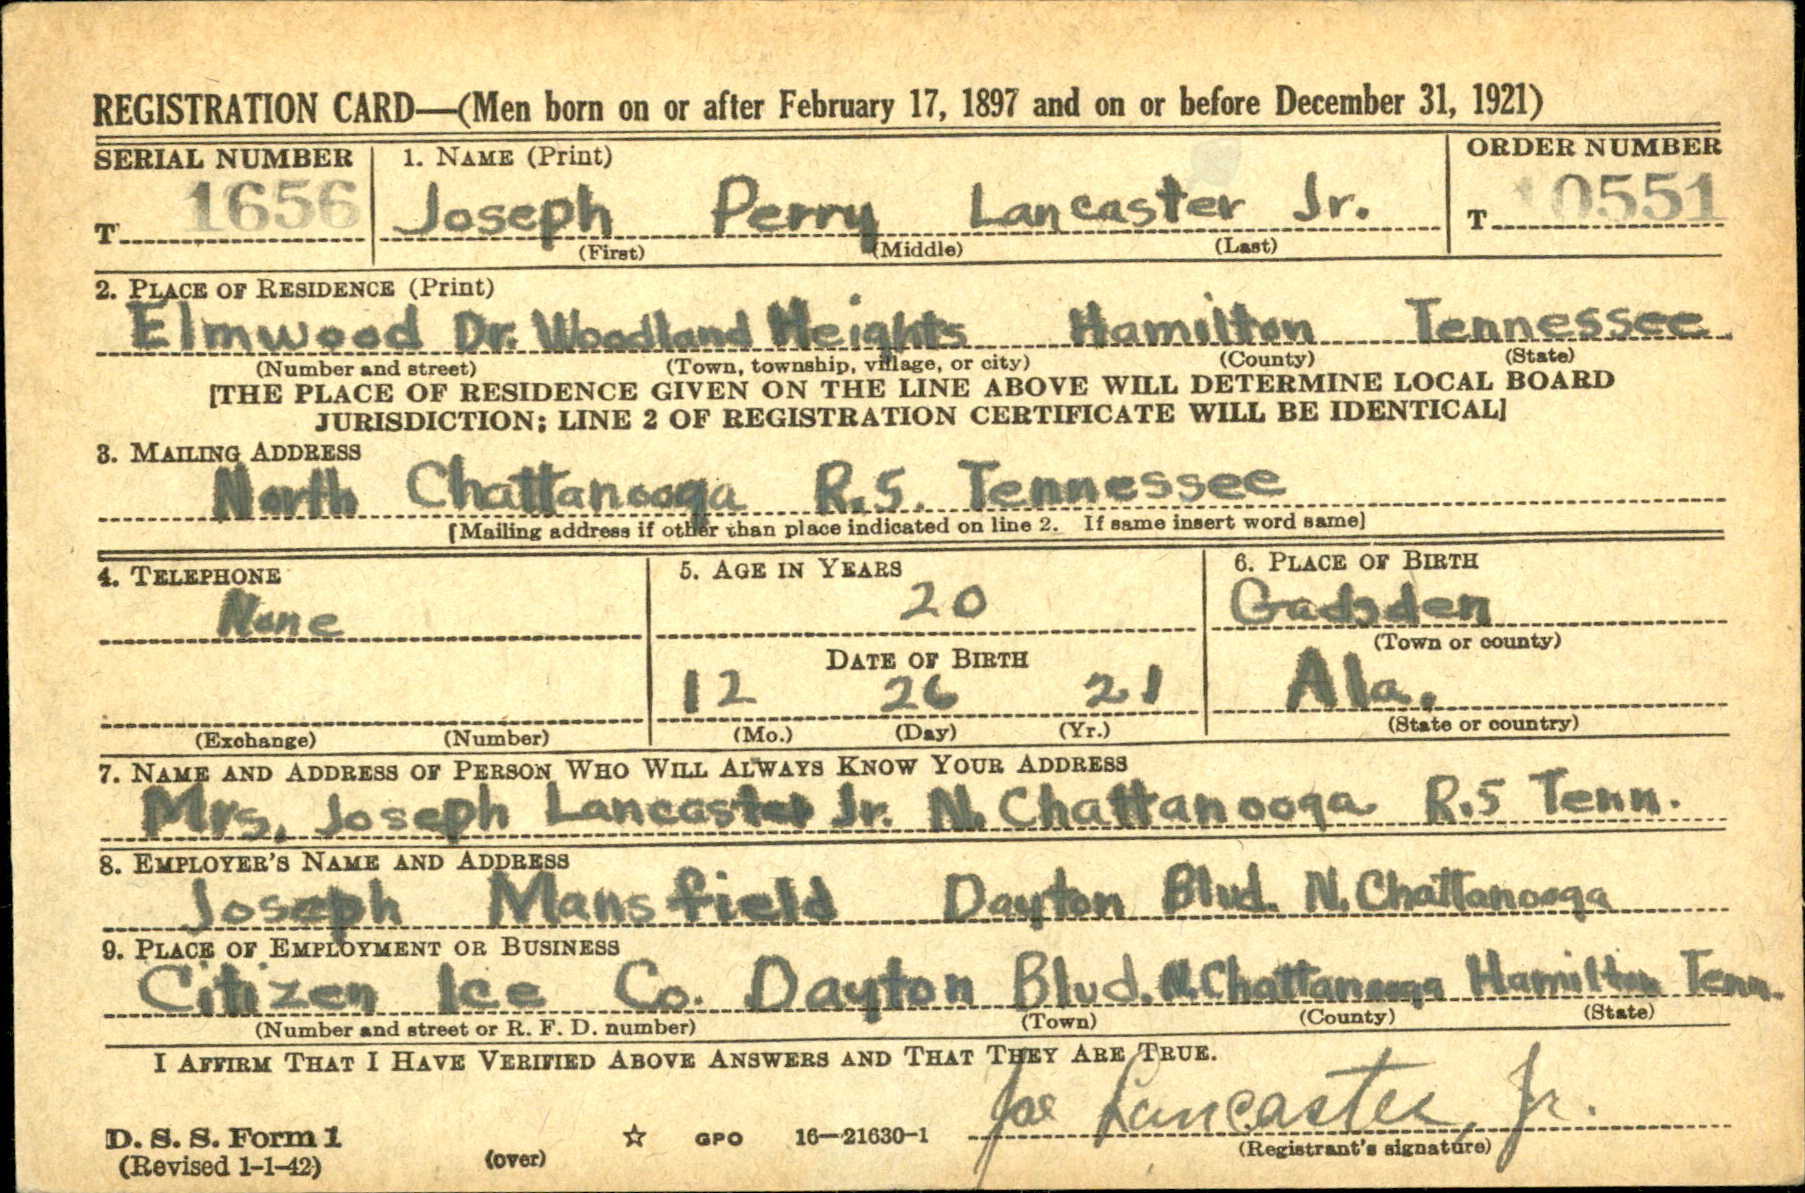 REGISTRATION CARD—(Men born on or after February 17, 1897 and on or before December 31, 1921)
SERIAL NUMBER 1. NAME (Print) ORDER NUMBER
T 1656 Joseph Perry Lancaster Jr. T 10551
(First) (Middle) (Last)
2. PLACE OF RESIDENCE (Print)
Elmwood Dr. Woodland Heights Hamilton Tennessee
(Number and street) (Town, township, village, or city) (County) (State)
[THE PLACE OF RESIDENCE GIVEN ON THE LINE ABOVE WILL DETERMINE LOCAL BOARD
JURISDICTION; LINE 2 OF REGISTRATION CERTIFICATE WILL BE IDENTICAL]
3. MAILING ADDRESS
North Chattanooga R.5. Tennessee
[Mailing address if other than place indicated on line 2. If same insert word same]
4. TELEPHONE 5. AGE IN YEARS 6. PLACE OF BIRTH
None 20 Gadsden
(Town or county)
DATE OF BIRTH
12 26 21 Ala.
(Exchange) (Number) (Mo.) (Day) (Yr.) (State or country)
7. NAME AND ADDRESS OF PERSON WHO WILL ALWAYS KNOW YOUR ADDRESS
Mrs. Joseph Lancaster Jr. N. Chattanooga R.5 Tenn.
8. EMPLOYER'S NAME AND ADDRESS
Joseph Mansfield Dayton Blvd. N. Chattanooga
9. PLACE OF EMPLOYMENT OR BUSINESS
Citizen Ice Co. Dayton Blvd. N. Chattanooga Hamilton Tenn.
(Number and street or R. F. D. number) (Town) (County) (State)
I AFFIRM THAT I HAVE VERIFIED ABOVE ANSWERS AND THAT THEY ARE TRUE.
Joe Lancaster, Jr.
D. S. S. Form 1 GPO 16—21630-1
(Revised 1-1-42) (over) (Registrant's signature)